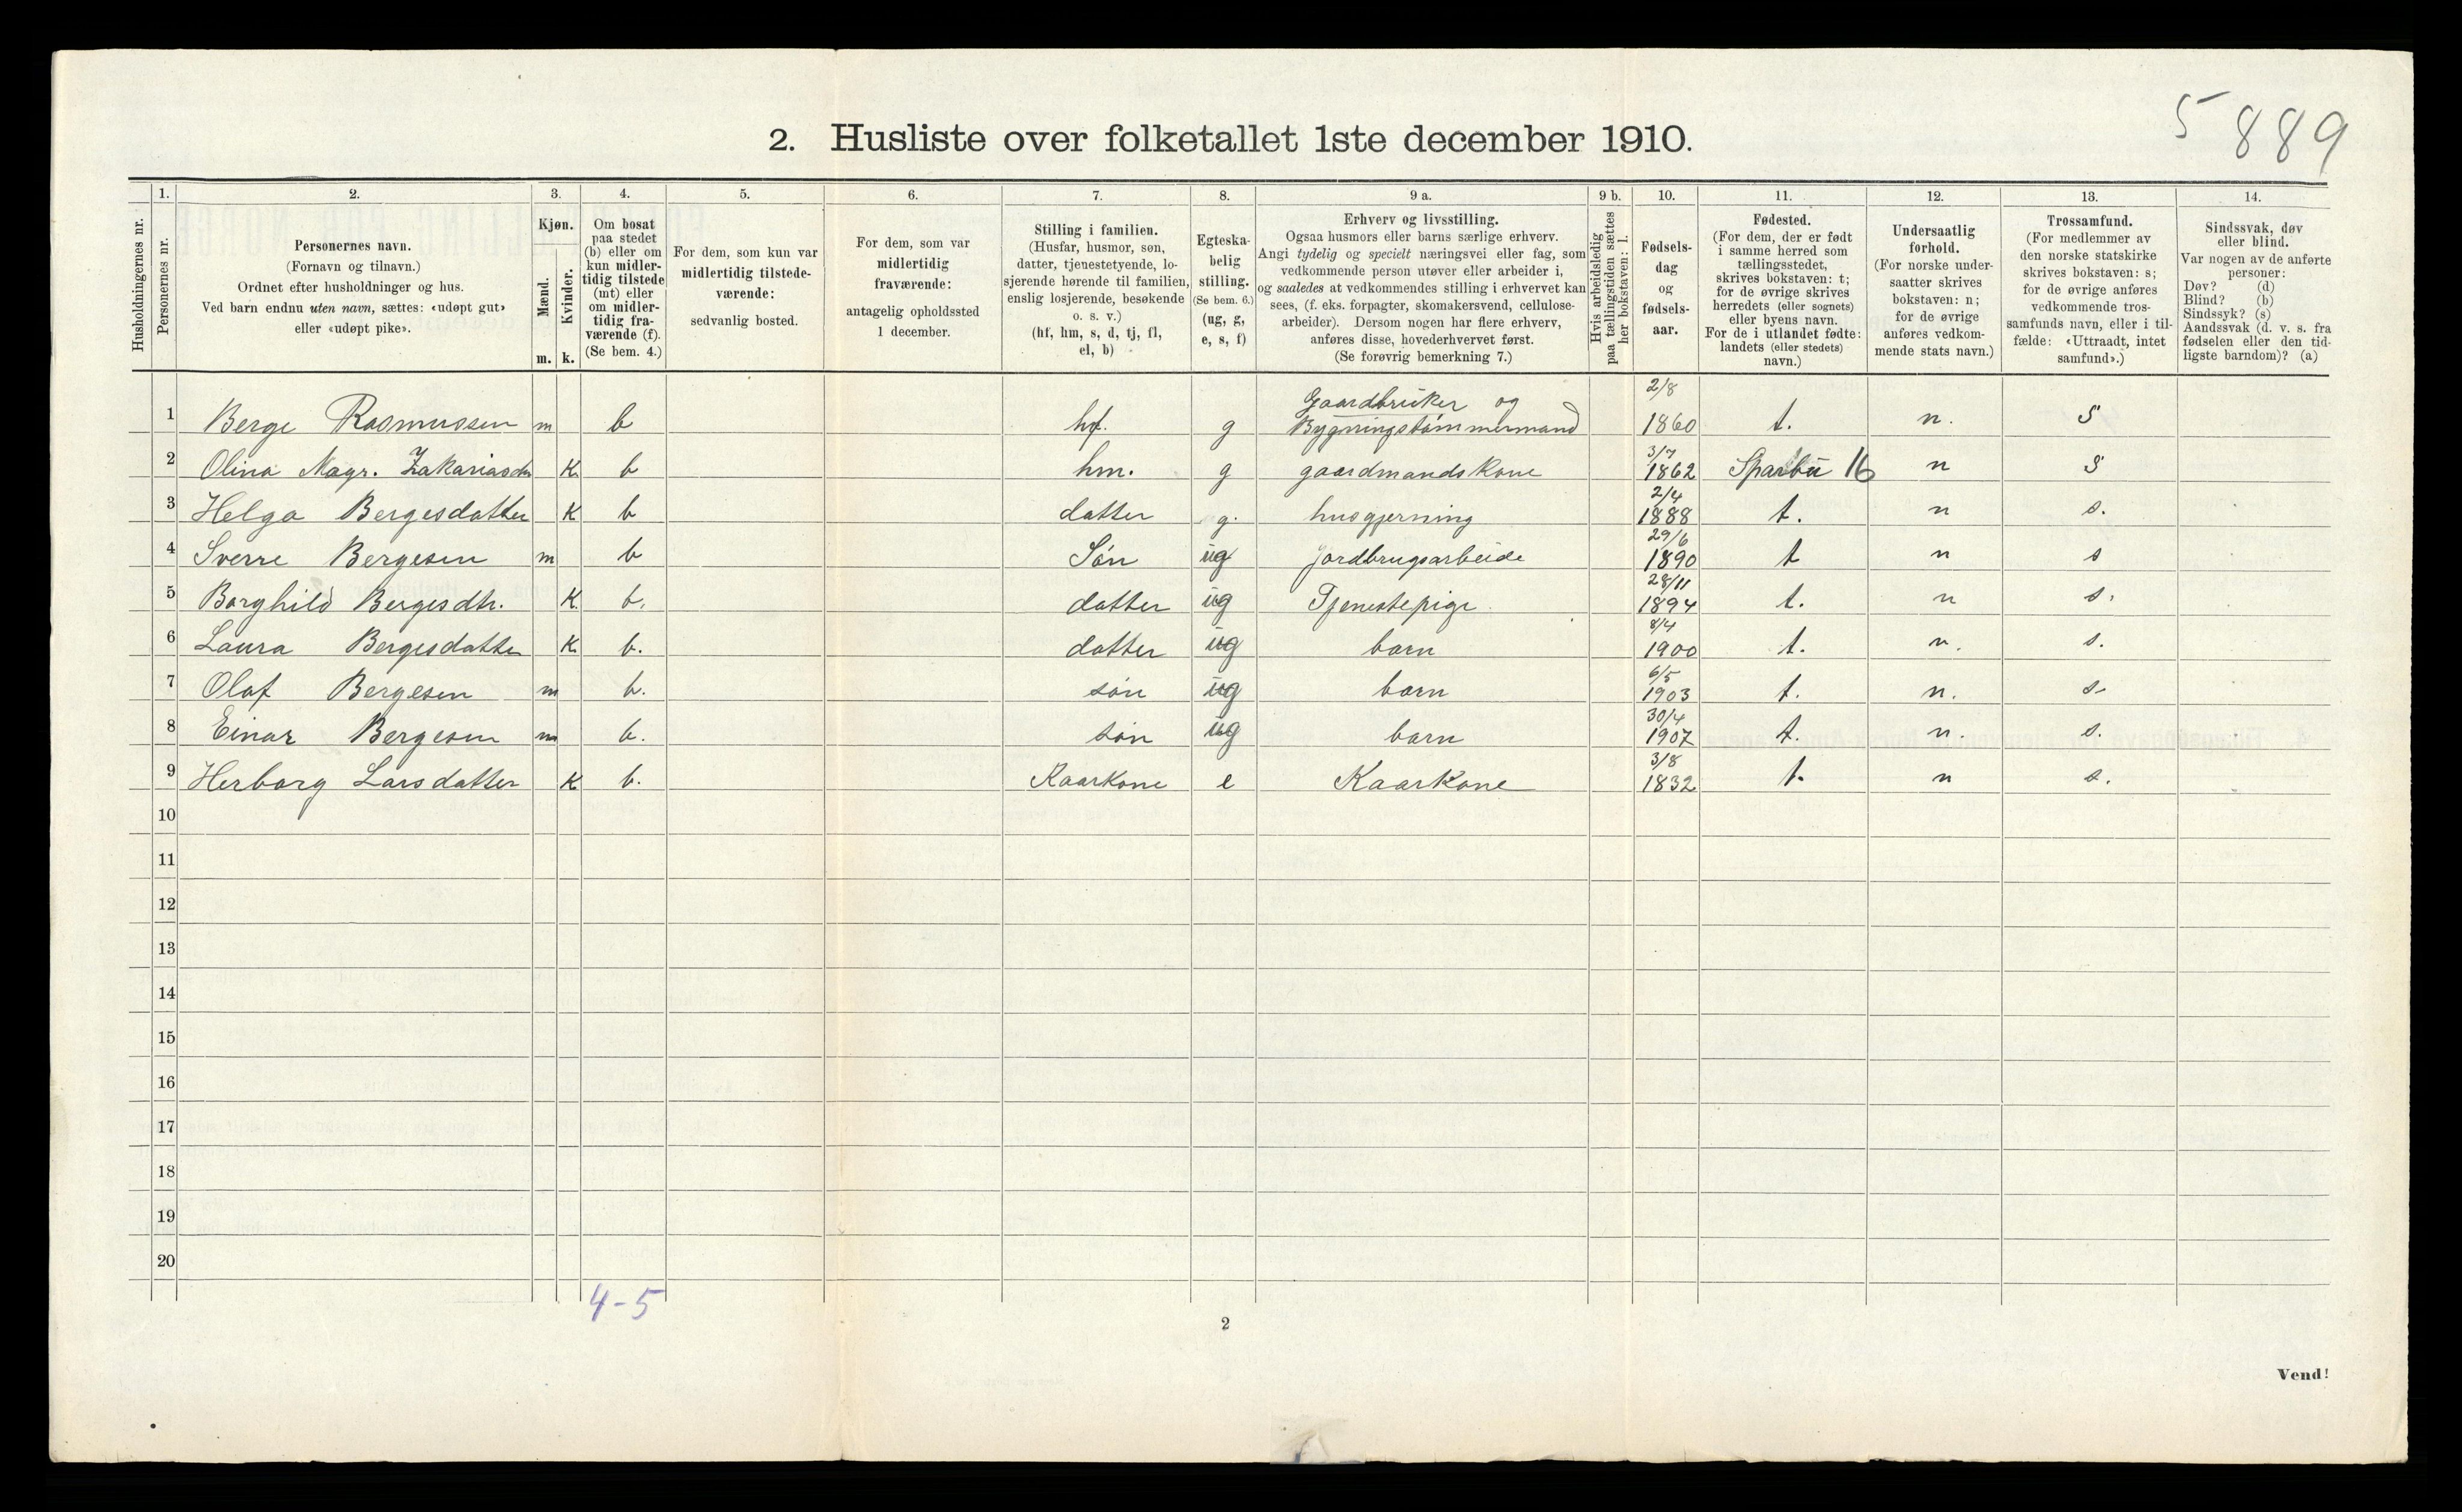 5 889
2. Husliste over folketallet 1ste december 1910.
1. 2. 3. 4. 5. 6. 7. 8. 9 a. 9 b. 10. 11. 12. 13. 14.
Husholdningernes nr.
Personernes nr.
Personernes navn.
(Fornavn og tilnavn.)
Ordnet efter husholdninger og hus.
Ved barn endnu uten navn, sættes: «udøpt gut»
eller «udøpt pike».
Kjøn.
Mænd.
Kvinder.
m. k.
Om bosat
paa stedet
(b) eller om
kun midler-
tidig tilstede
(mt) eller
om midler-
tidig fra-
værende (f).
(Se bem. 4.)
For dem, som kun var
midlertidig tilstede-
værende:
sedvanlig bosted.
For dem, som var
midlertidig
fraværende:
antagelig opholdssted
1 december.
Stilling i familien.
(Husfar, husmor, søn,
datter, tjenestetyende, lo-
sjerende hørende til familien,
enslig losjerende, besøkende
o. s. v.)
(hf, hm, s, d, tj, fl,
el, b)
Egteska-
belig
stilling.
(Se bem. 6.)
(ug, g,
e, s, f)
Erhverv og livsstilling.
Ogsaa husmors eller barns særlige erhverv.
Angi tydelig og specielt næringsvei eller fag, som
vedkommende person utøver eller arbeider i,
og saaledes at vedkommendes stilling i erhvervet kan
sees, (f. eks. forpagter, skomakersvend, cellulose-
arbeider). Dersom nogen har flere erhverv,
anføres disse, hovederhvervet først.
(Se forøvrig bemerkning 7.)
Hvis arbeidsledig
paa tællingstiden sættes
her bokstaven: l.
Fødsels-
dag
og
fødsels-
aar.
Fødested.
(For dem, der er født
i samme herred som
tællingsstedet,
skrives bokstaven: t;
for de øvrige skrives
herredets (eller sognets)
eller byens navn.
For de i utlandet fødte:
landets (eller stedets)
navn.)
Undersaatlig
forhold.
(For norske under-
saatter skrives
bokstaven: n;
for de øvrige
anføres vedkom-
mende stats navn.)
Trossamfund.
(For medlemmer av
den norske statskirke
skrives bokstaven: s;
for de øvrige anføres
vedkommende tros-
samfunds navn, eller i til-
fælde: «Uttraadt, intet
samfund».)
Sindssvak, døv
eller blind.
Var nogen av de anførte
personer:
Døv? (d)
Blind? (b)
Sindssyk? (s)
Aandssvak (d. v. s. fra
fødselen eller den tid-
ligste barndom)? (a)
1 Berge Rasmussen m b hf. g Gaardbruker og Bygningstømmermand 2/8 1860 t. n. S
2 Olina Magr. Zakariasdtr K b hm. g gaardmandskone 3/7 1862 Sparbu 16 n S
3 Helga Bergesdatter K b datter g. husgjerning 2/4 1888 t. n s.
4 Sverre Bergesen m b Søn ug jordbrugsarbeide 29/6 1890 t n s
5 Borghild Bergesdtr. K b. datter ug Tjenestepige 28/11 1894 t. n s.
6 Laura Bergesdatter K b. datter ug barn 8/4 1900 t. n. s.
7 Olaf Bergesen m b. søn ug barn 6/5 1903 t. n. s.
8 Einar Bergesen m b. søn ug barn 30/4 1907 t. n. s.
9 Herborg Larsdatter K b. Kaarkone e Kaarkone 3/8 1832 t. n s.
10
11
12
13
14
15
16
17
18
19
20
4-5
2
Vend!